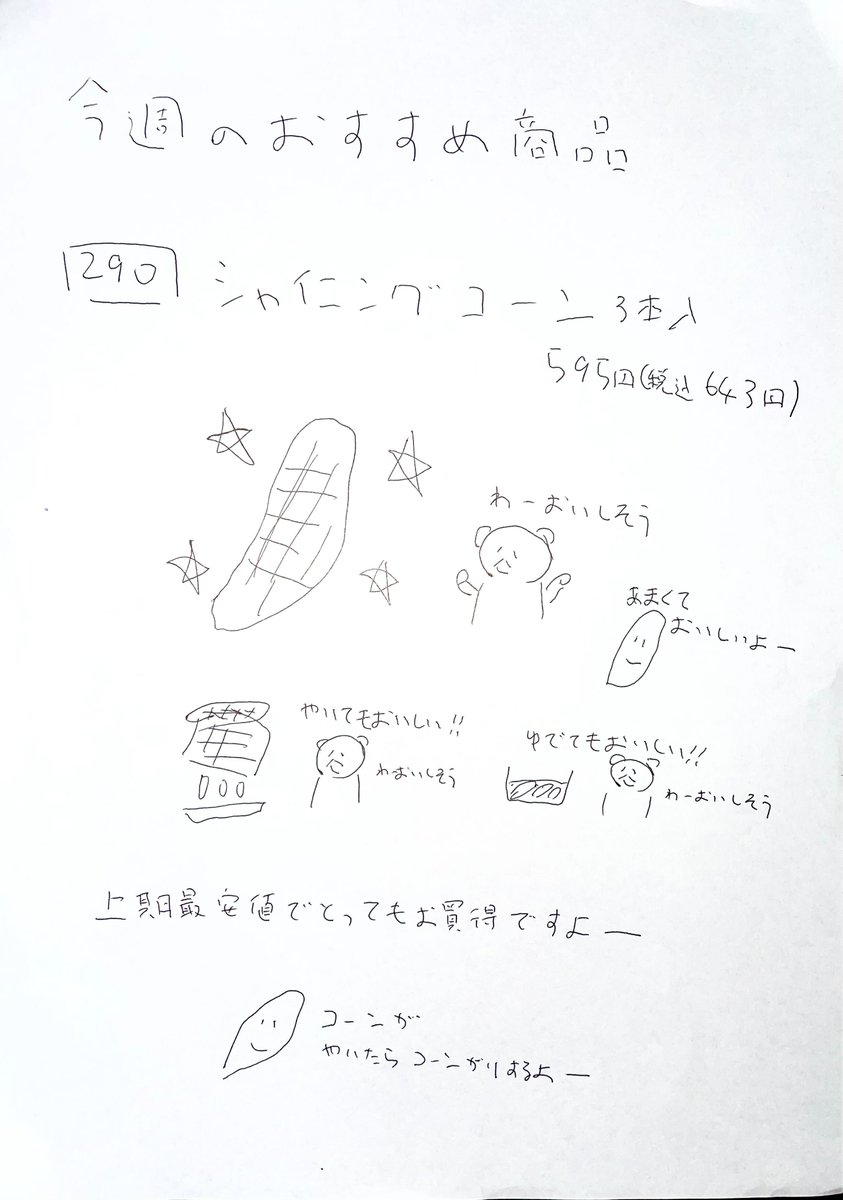 今週のおすすめ商品
290 シャイニングコーン 3本入
595円(税込643円)
わーおいしそう
あまくて
おいしいよー
やいてもおいしい!!
わーおいしそう
ゆでてもおいしい!!
わーおいしそう
上期最安値でとってもお買得ですよー
コーンが
やいたらコーンがりするよー